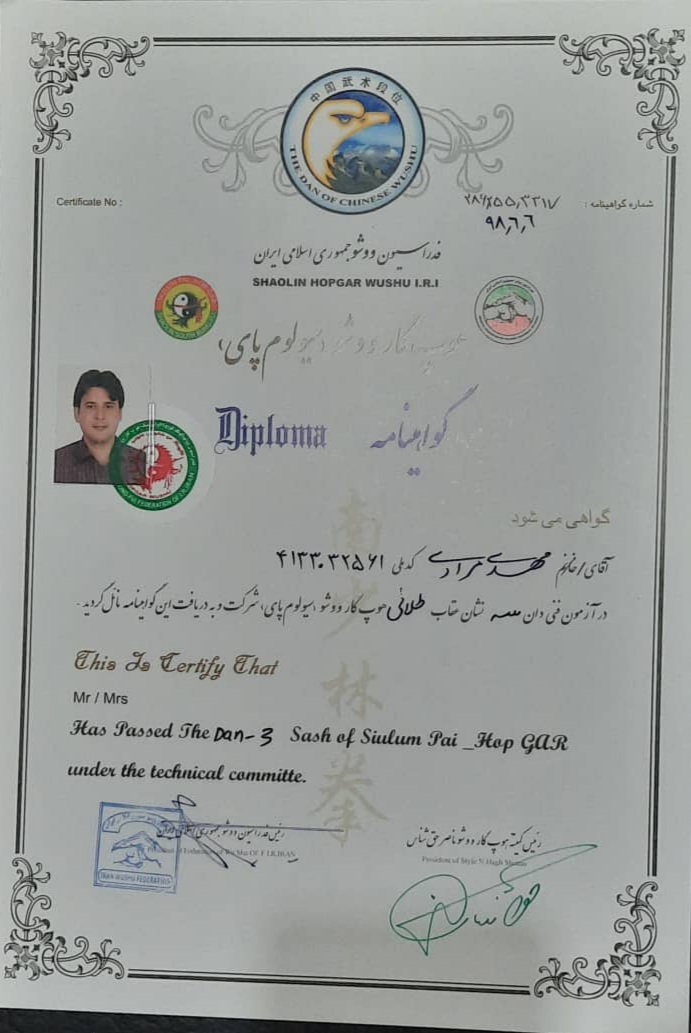 中国武术段位
THE DAN OF CHINESE WUSHU
Certificate No :
شماره گواهینامه :
۹۸,۶,۶
فدراسیون ووشو جمهوری اسلامی ایران
SHAOLIN HOPGAR WUSHU I.R.I
سیولوم پای،
Diploma
گواهینامه
گواهی می شود
آقای/خانم مهدی مرادی کدملی ۴۱۳۳۰۳۲۵۶۱
در آزمون فنی دان سه نشان عقاب طلائی هوپ کار ووشو ،سیولوم پای، شرکت و به دریافت این گواهینامه نائل گردید .
南少林拳
This Is Certify That
Mr / Mrs
Has Passed The Dan-3 Sash of Siulum Pai _Hop GAR
under the technical committe.
رئیس فدراسیون ووشو جمهوری اسلامی ایران
رئیس کمیته هوپ کار ووشو ناصر حق شناس
President of Style N.Hagh
IRAN WUSHU FEDERATION